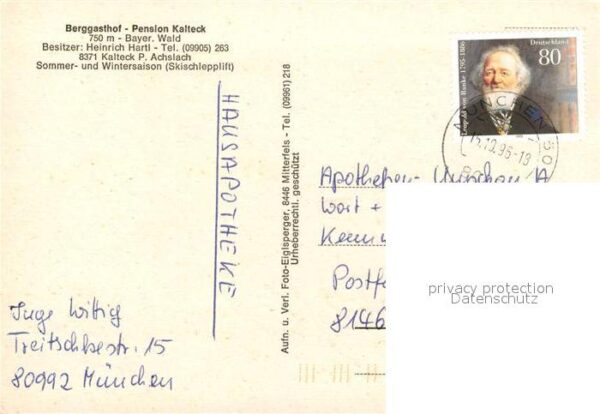 Berggasthof - Pension Kalteck
750 m - Bayer. Wald
Besitzer: Heinrich Hartl - Tel. (09905) 263
8371 Kalteck P. Achslach
Sommer- und Wintersaison (Skischlepplift)
HAUSAPOTHEKE
Inge Wittig
Treitschkestr. 15
80992 München
Aufn. u. Verl. Foto-Eiglsperger, 8446 Mitterfels - Tel. (09961) 218
Urheberrechtl. geschützt
Deutschland
80
Leopold von Ranke 1795-1886
MÜNCHEN
.10.95-13
Apotheken-
Wort +
Postf
8146
privacy protection
Datenschutz